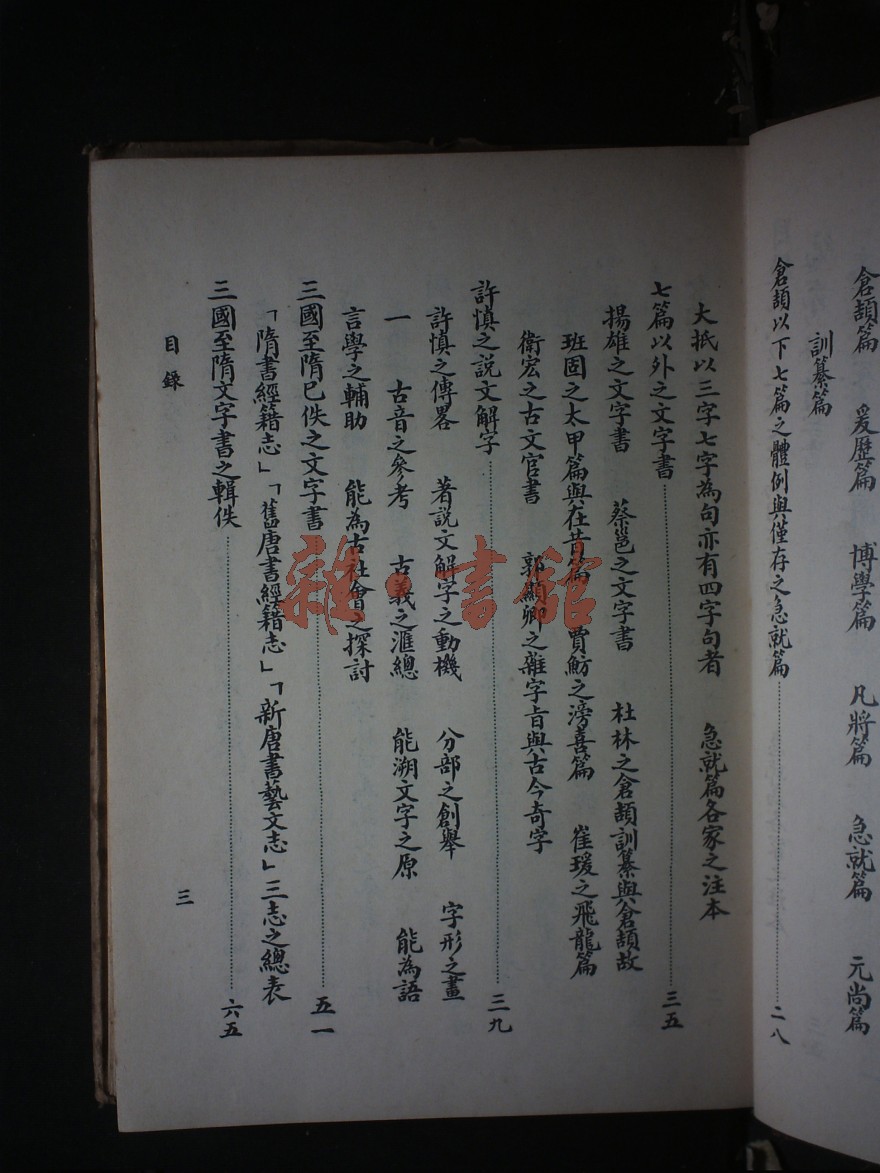 倉頡篇 爰歷篇 博學篇 凡將篇 急就篇 元尚篇
訓纂篇
倉頡以下七篇之體例與僅存之急就篇 二八
大抵以三字七字為句亦有四字句者 急就篇各家之注本
七篇以外之文字書 三五
揚雄之文字書 蔡邕之文字書 杜林之倉頡訓纂與倉頡故
班固之太甲篇與在昔篇 賈魴之滂喜篇 崔瑗之飛龍篇
衛宏之古文官書 郭顯卿之雜字旨與古今奇字
許慎之說文解字 三九
許慎之傳畧 著說文解字之動機 分部之創舉 字形之畫
一 古音之參考 古義之滙總 能溯文字之原 能為語
言學之輔助 能為古社會之探討
三國至隋已佚之文字書 五一
「隋書經籍志」「舊唐書經籍志」「新唐書藝文志」三志之總表
三國至隋文字書之輯佚 六五
目錄
三
雜·書館